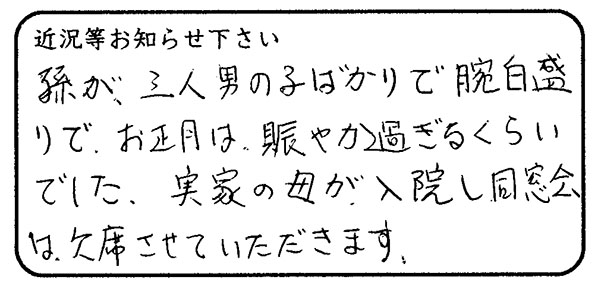 近況等お知らせ下さい
孫が、三人男の子ばかりで腕白盛
りで、お正月は、賑やか過ぎるくらい
でした、実家の母が、入院し同窓会
は、欠席させていただきます。